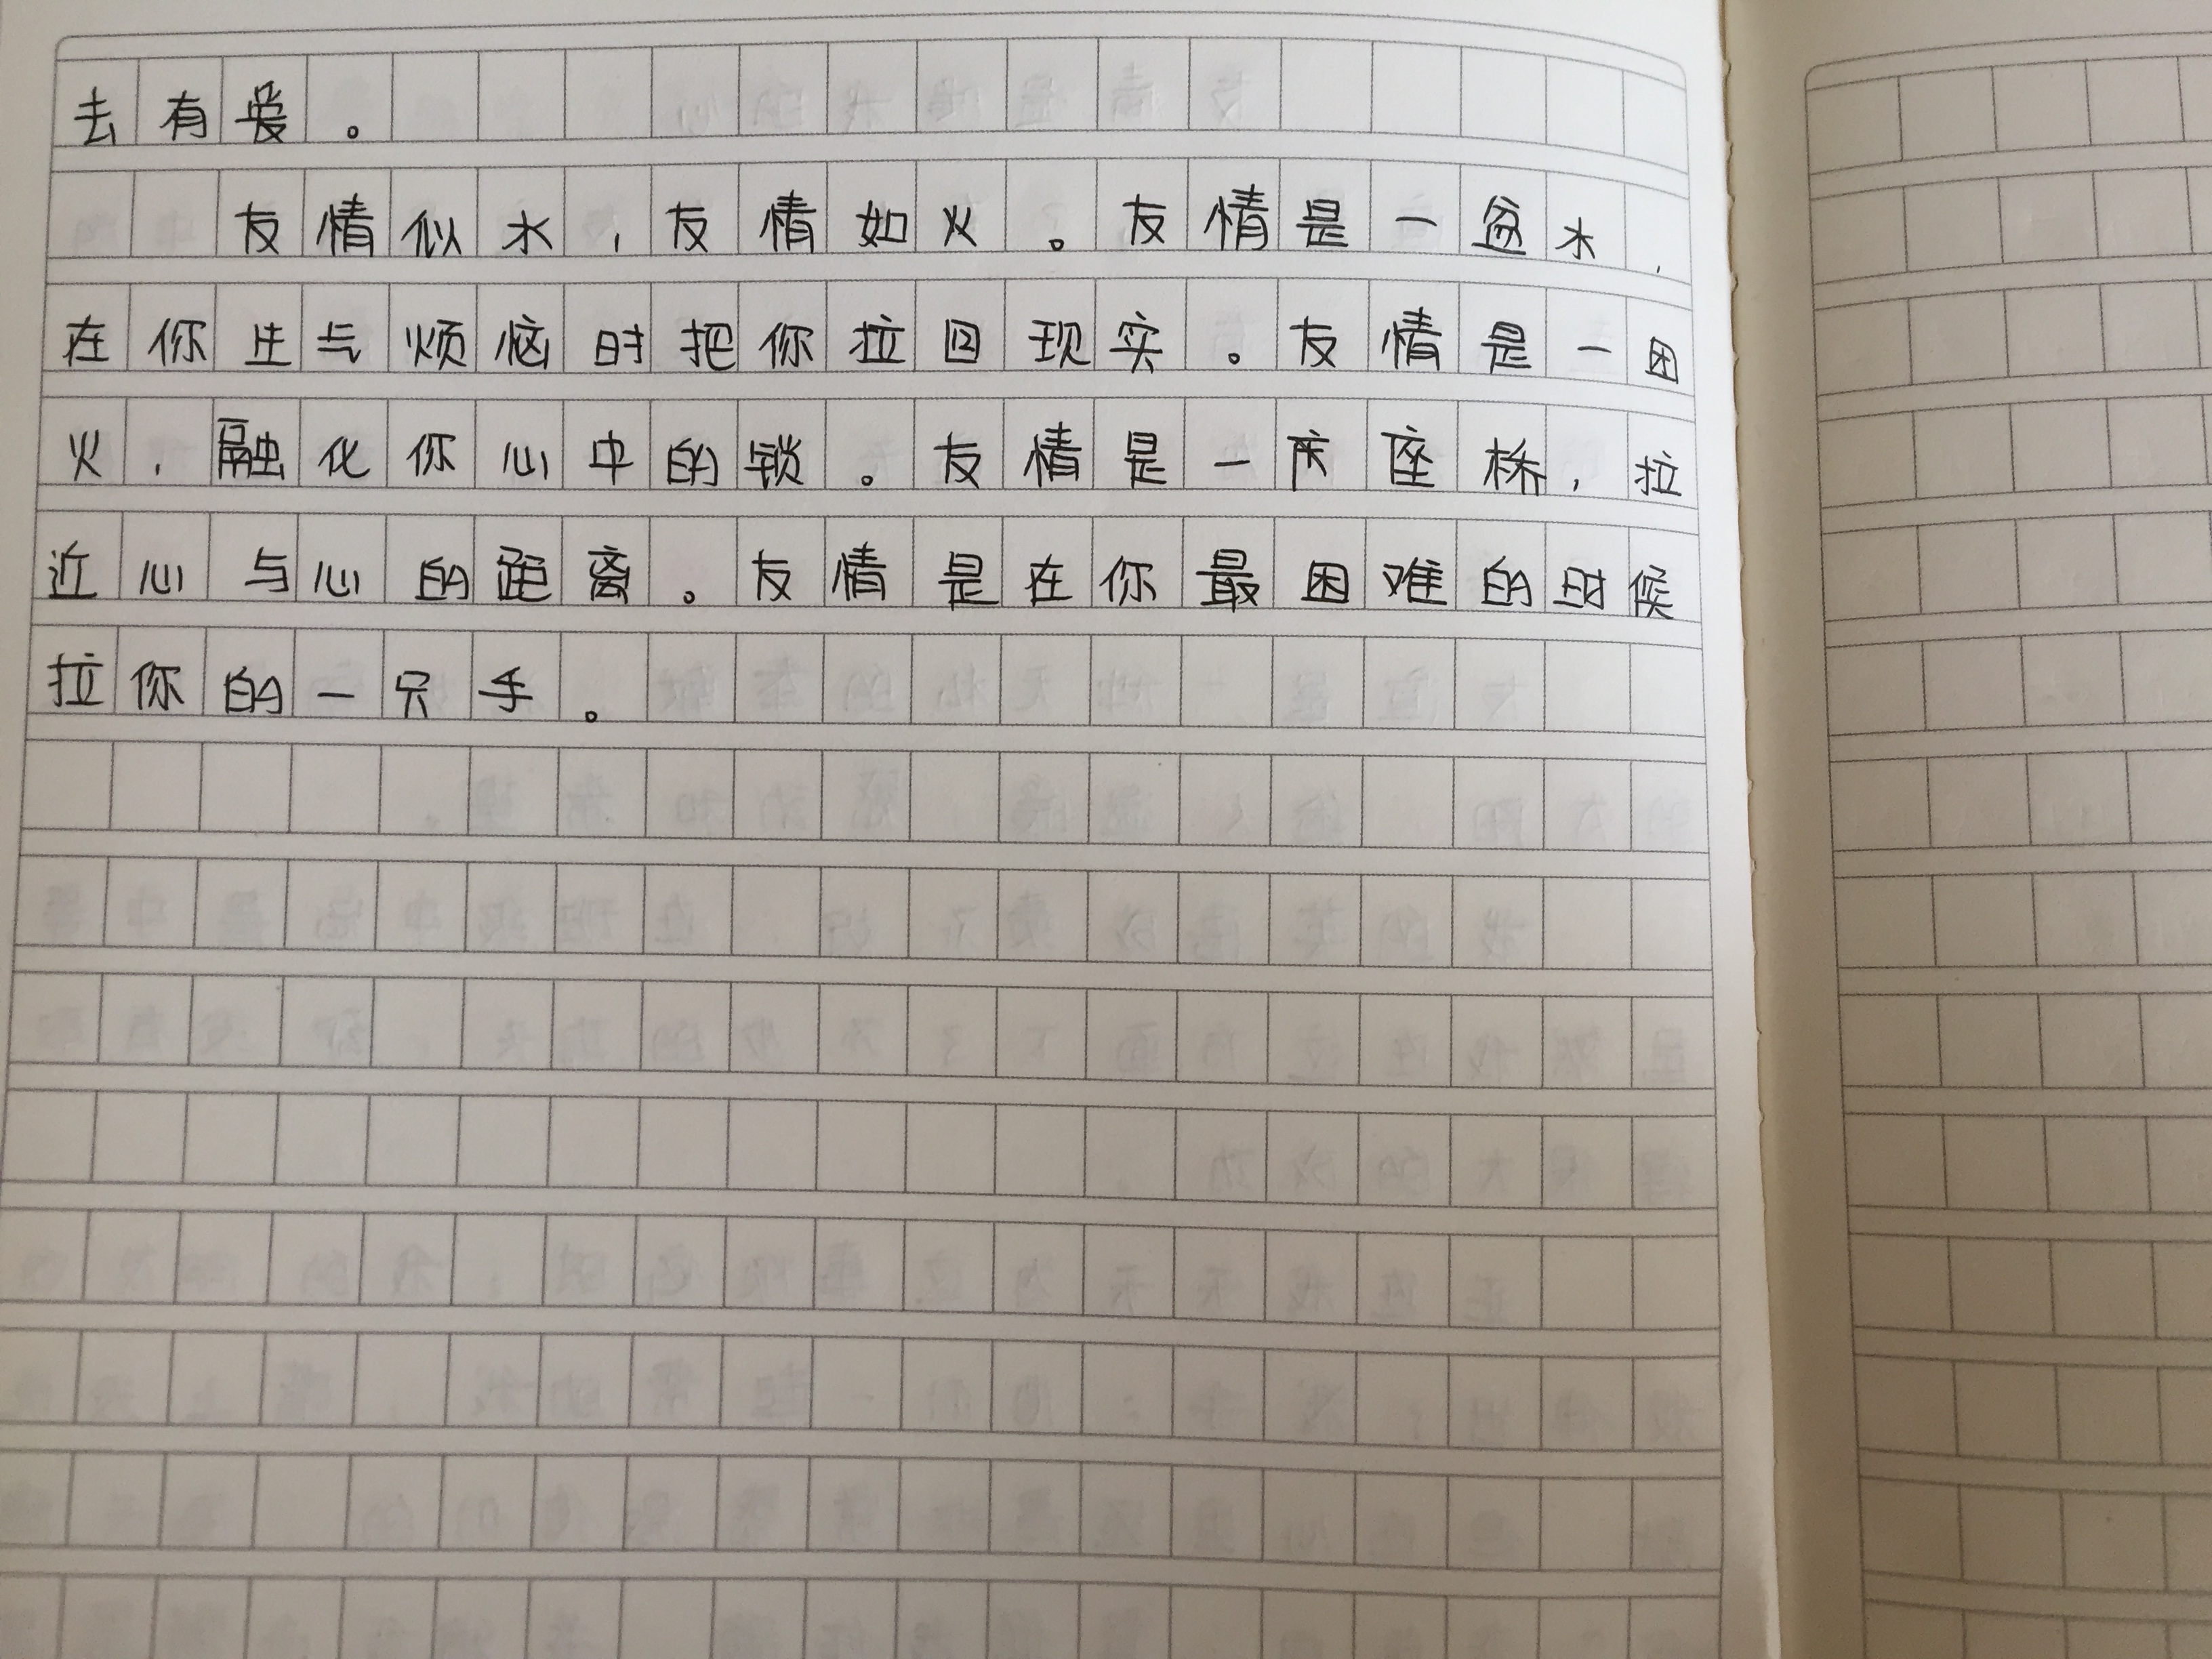 去有爱。
友情似水，友情如火。友情是一盆水，
在你生气烦恼时把你拉回现实。友情是一团
火，融化你心中的锁。友情是一座桥，拉
近心与心的距离。友情是在你最困难的时候
拉你的一只手。